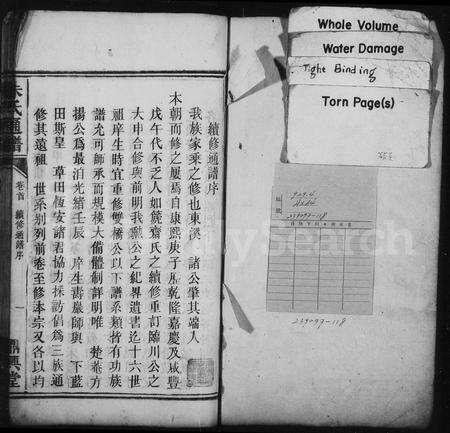 續修通譜序
我族家乘之修也東溪 諸公肇其端入
本朝而修之屢焉自康熙庚子歷乾隆嘉慶及咸豐
戊午代不乏人如麓齋氏之續修重訂臨川公之
大申合修與前明我勳公之紀畀遺書迄十六世
祖庠生時宜重修雙橋公以下譜系類皆有功族
譜尤可師承而規模大備體制詳明唯 楚菴方
揚公為最泊光緒壬辰 庠生壽巖師與 下藍
田斯皇 草田恆安諸君協力採訪倡為三族通
修其遠祖 世系別列前卷至修本宗又各以均
朱氏通譜
卷首 續修通譜序
一
鼎興堂
Whole Volume
Water Damage
Tight Binding
Torn Page(s)
239093-118
239093-118
FamilySearch